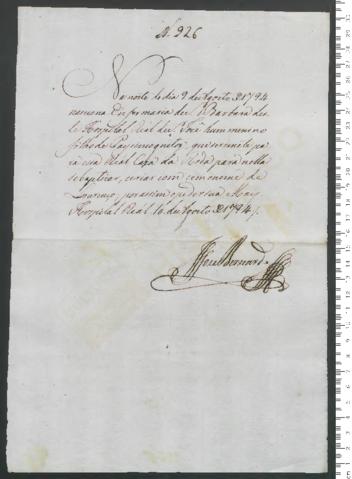 N. 926
Na noite do dia 9 de Agosto de 1794
nasceu na Enfermaria de S. Barbara des-
te Hospital Real de S. José hum menino
filho de Pays incognitos, que se remete pa-
ra essa Real Caza da Roda para nella
se baptizar, e criar com o nome de
Lourenço, por assim o pedir sua May
Hospital Real 10 de Agosto de 1794